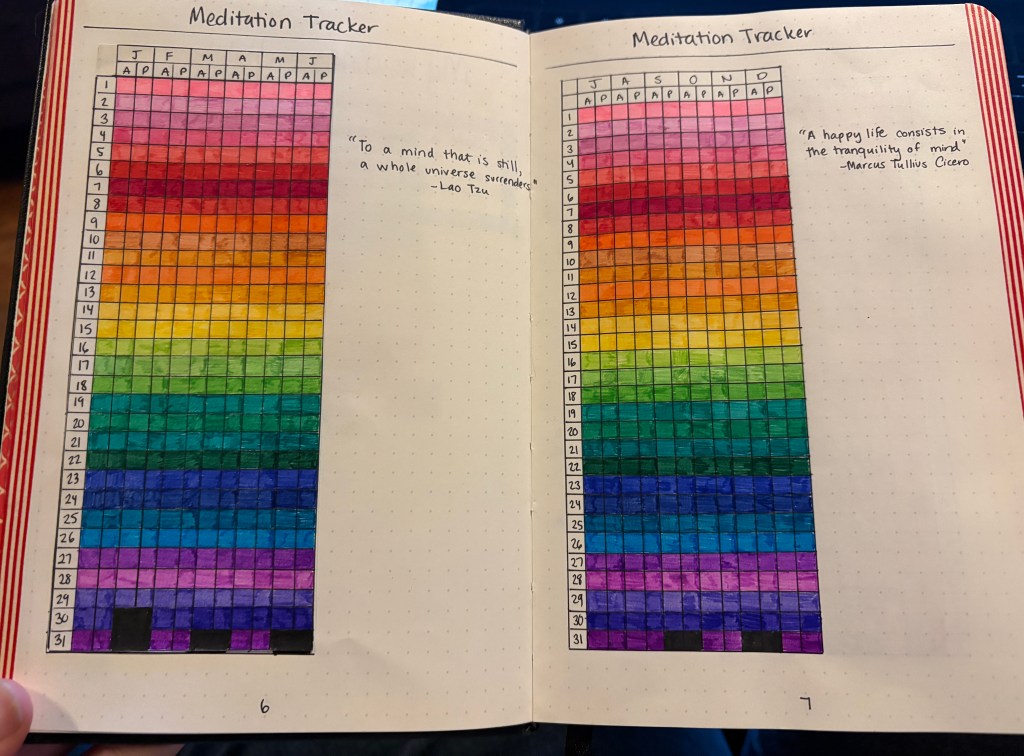 Meditation Tracker
J F M A M J
A P A P A P A P A P A P
1
2
3
4
5
6
7
8
9
10
11
12
13
14
15
16
17
18
19
20
21
22
23
24
25
26
27
28
29
30
31
"To a mind that is still,
a whole universe surrenders"
-Lao Tzu
6
Meditation Tracker
J A S O N D
A P A P A P A P A P A P
1
2
3
4
5
6
7
8
9
10
11
12
13
14
15
16
17
18
19
20
21
22
23
24
25
26
27
28
29
30
31
"A happy life consists in
the tranquility of mind"
-Marcus Tullius Cicero
7